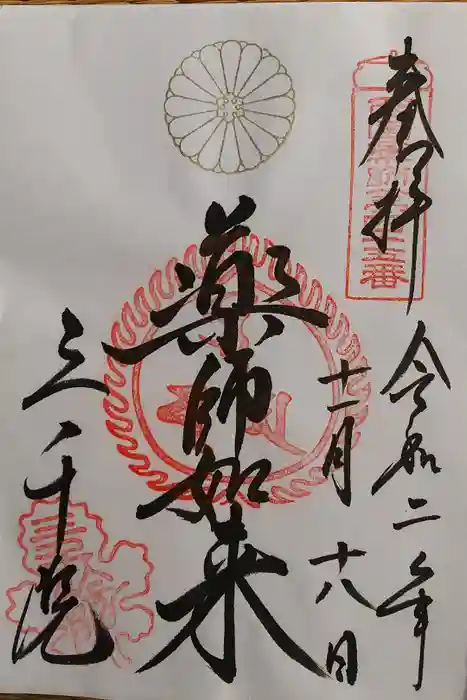 奉拝
令和二年
十一月十八日
薬師如来
三千院